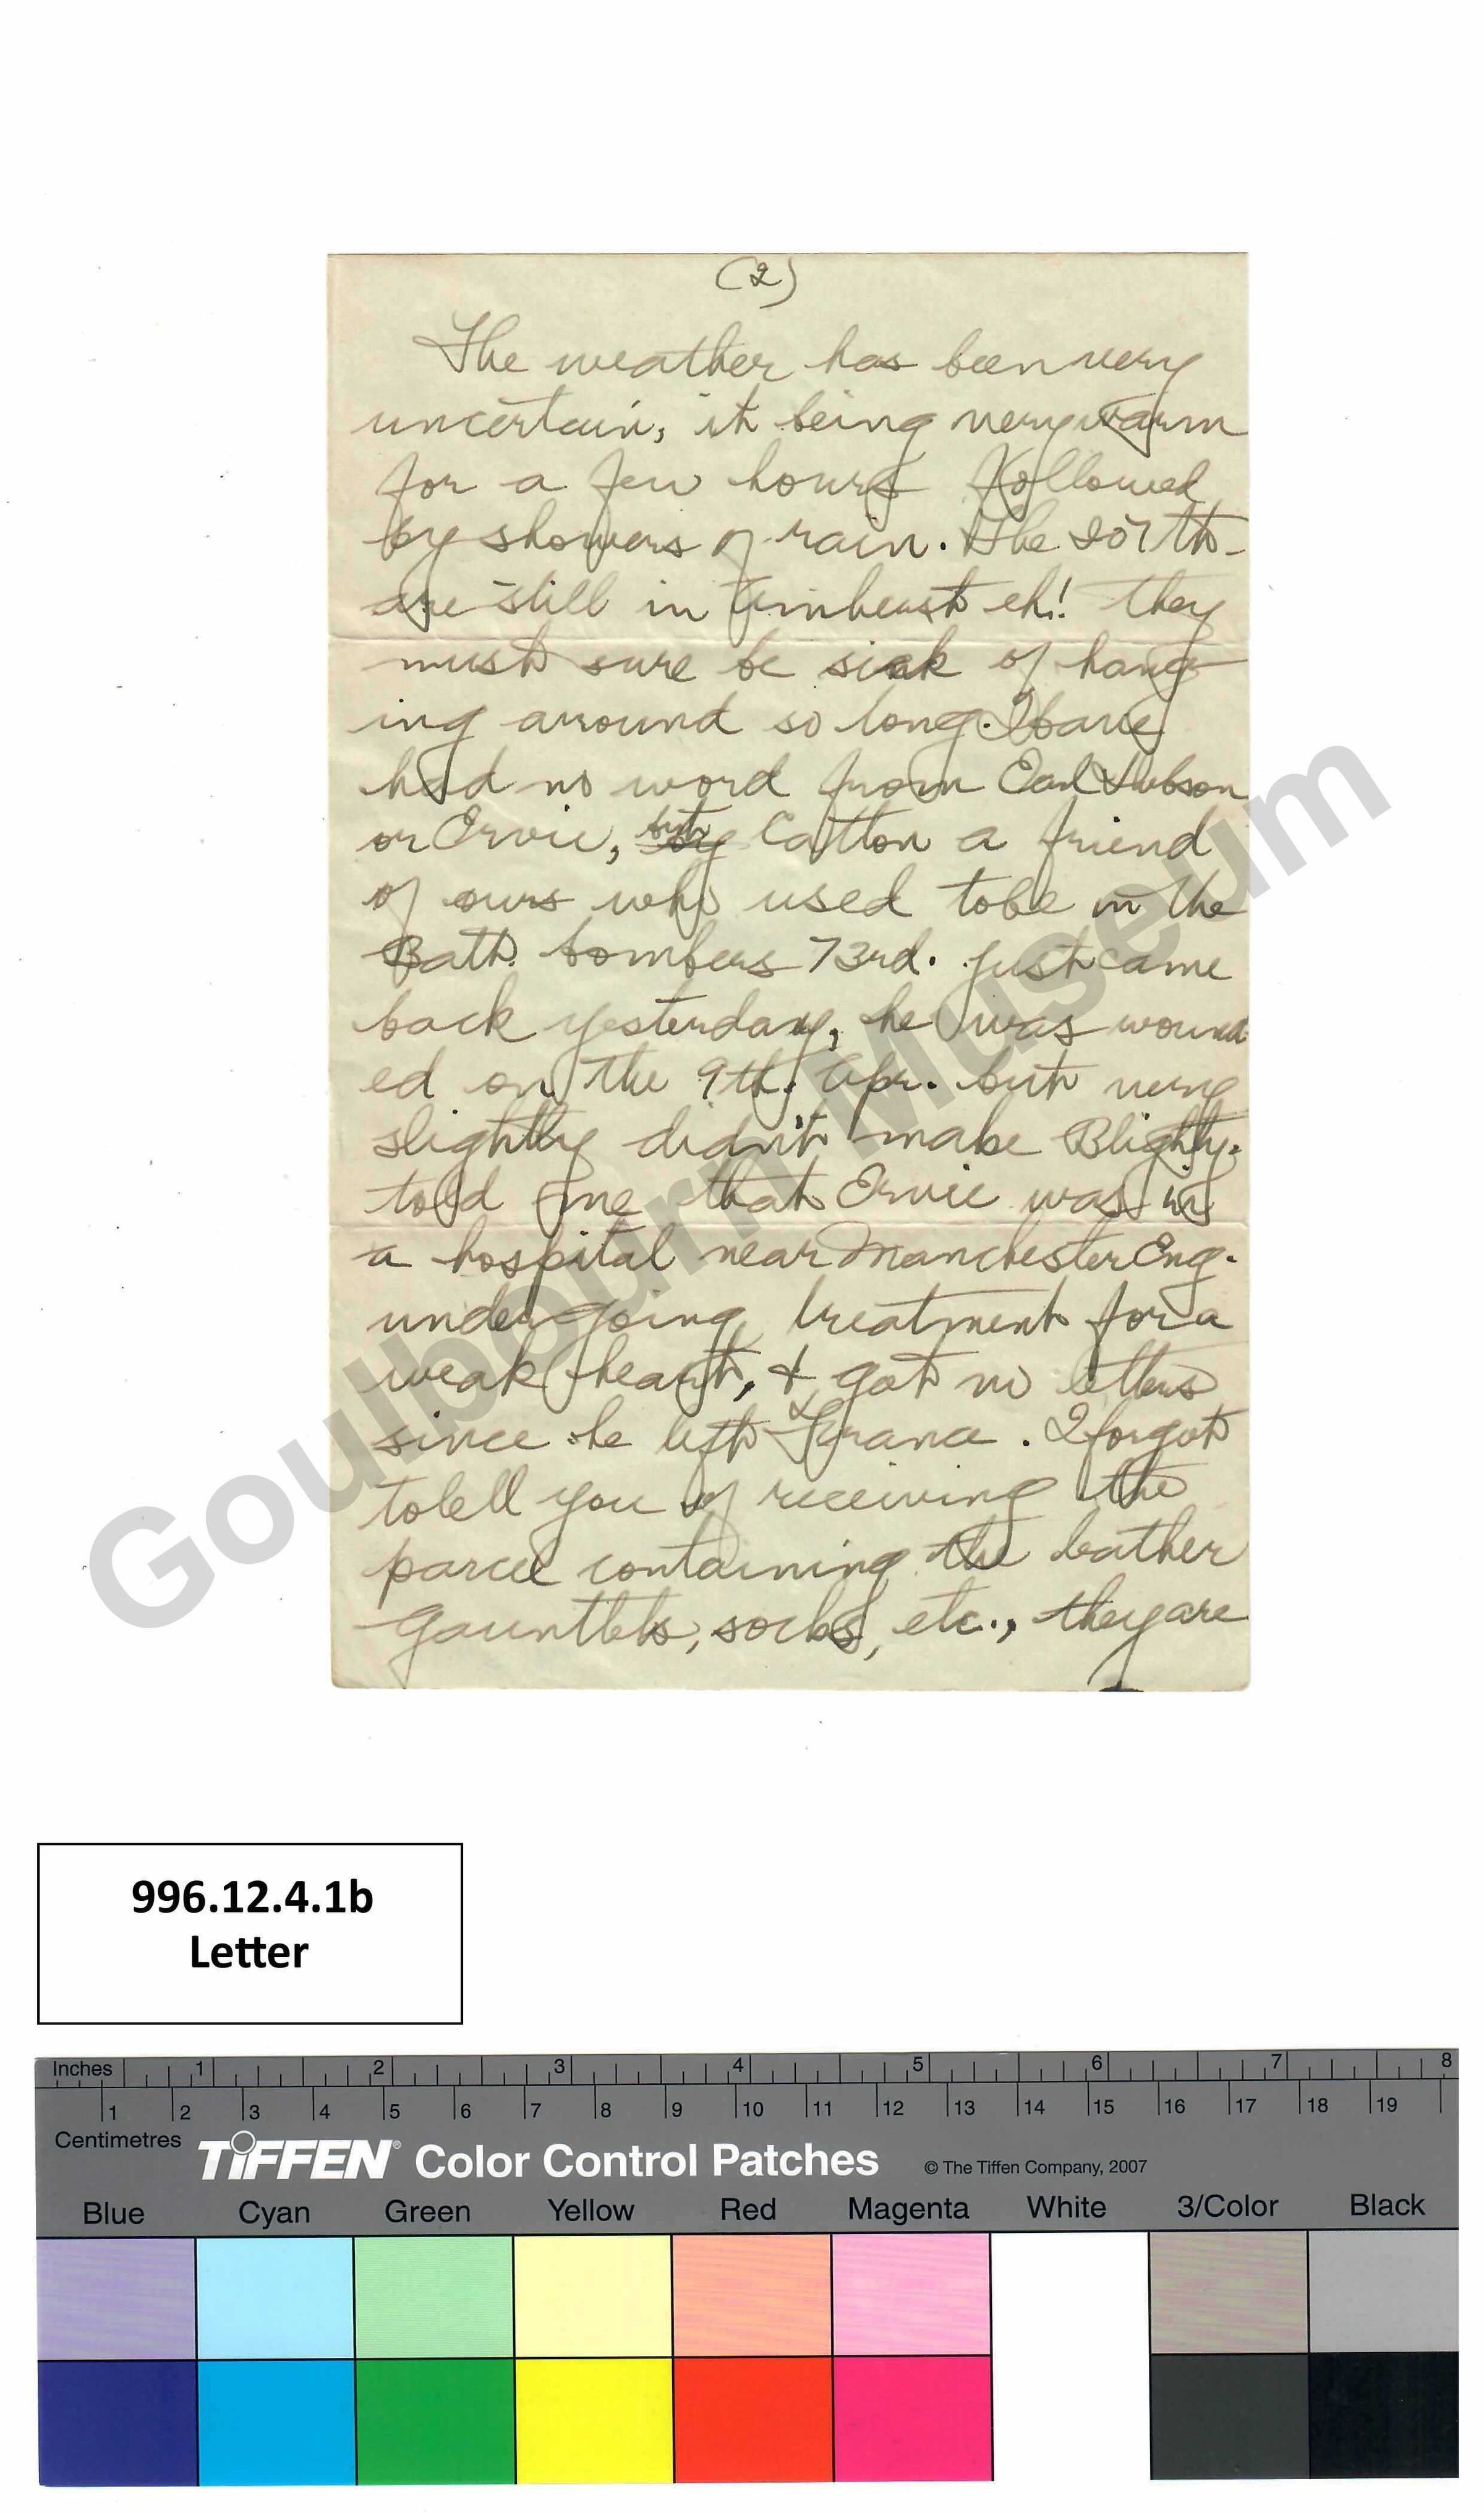 (2)
The weather has been very
uncertain, it being very warm
for a few hours followed
by showers of rain. The 207th
are still in Amherst eh! they
must sure be sick of hang-
ing arround so long. I have
had no word from Earl Hobson
or Ervie, but Catton a friend
of ours who used to be in the
Batt. bombers 73rd. just came
back yesterday, he was wound-
ed on the 9th. Apr. but very
slightly didn't make Blighty.
told me that Ervie was in
a hospital near Manchester Eng.
undergoing treatment for a
weak heart, & got no letters
since he left France. I forgot
to tell you of receiving the
parcel containing the leather
gauntlets, socks, etc., they are
Goulbourn Museum
996.12.4.1b
Letter
Inches 1 2 3 4 5 6 7 8
1 2 3 4 5 6 7 8 9 10 11 12 13 14 15 16 17 18 19
Centimetres
TIFFEN® Color Control Patches © The Tiffen Company, 2007
Blue Cyan Green Yellow Red Magenta White 3/Color Black